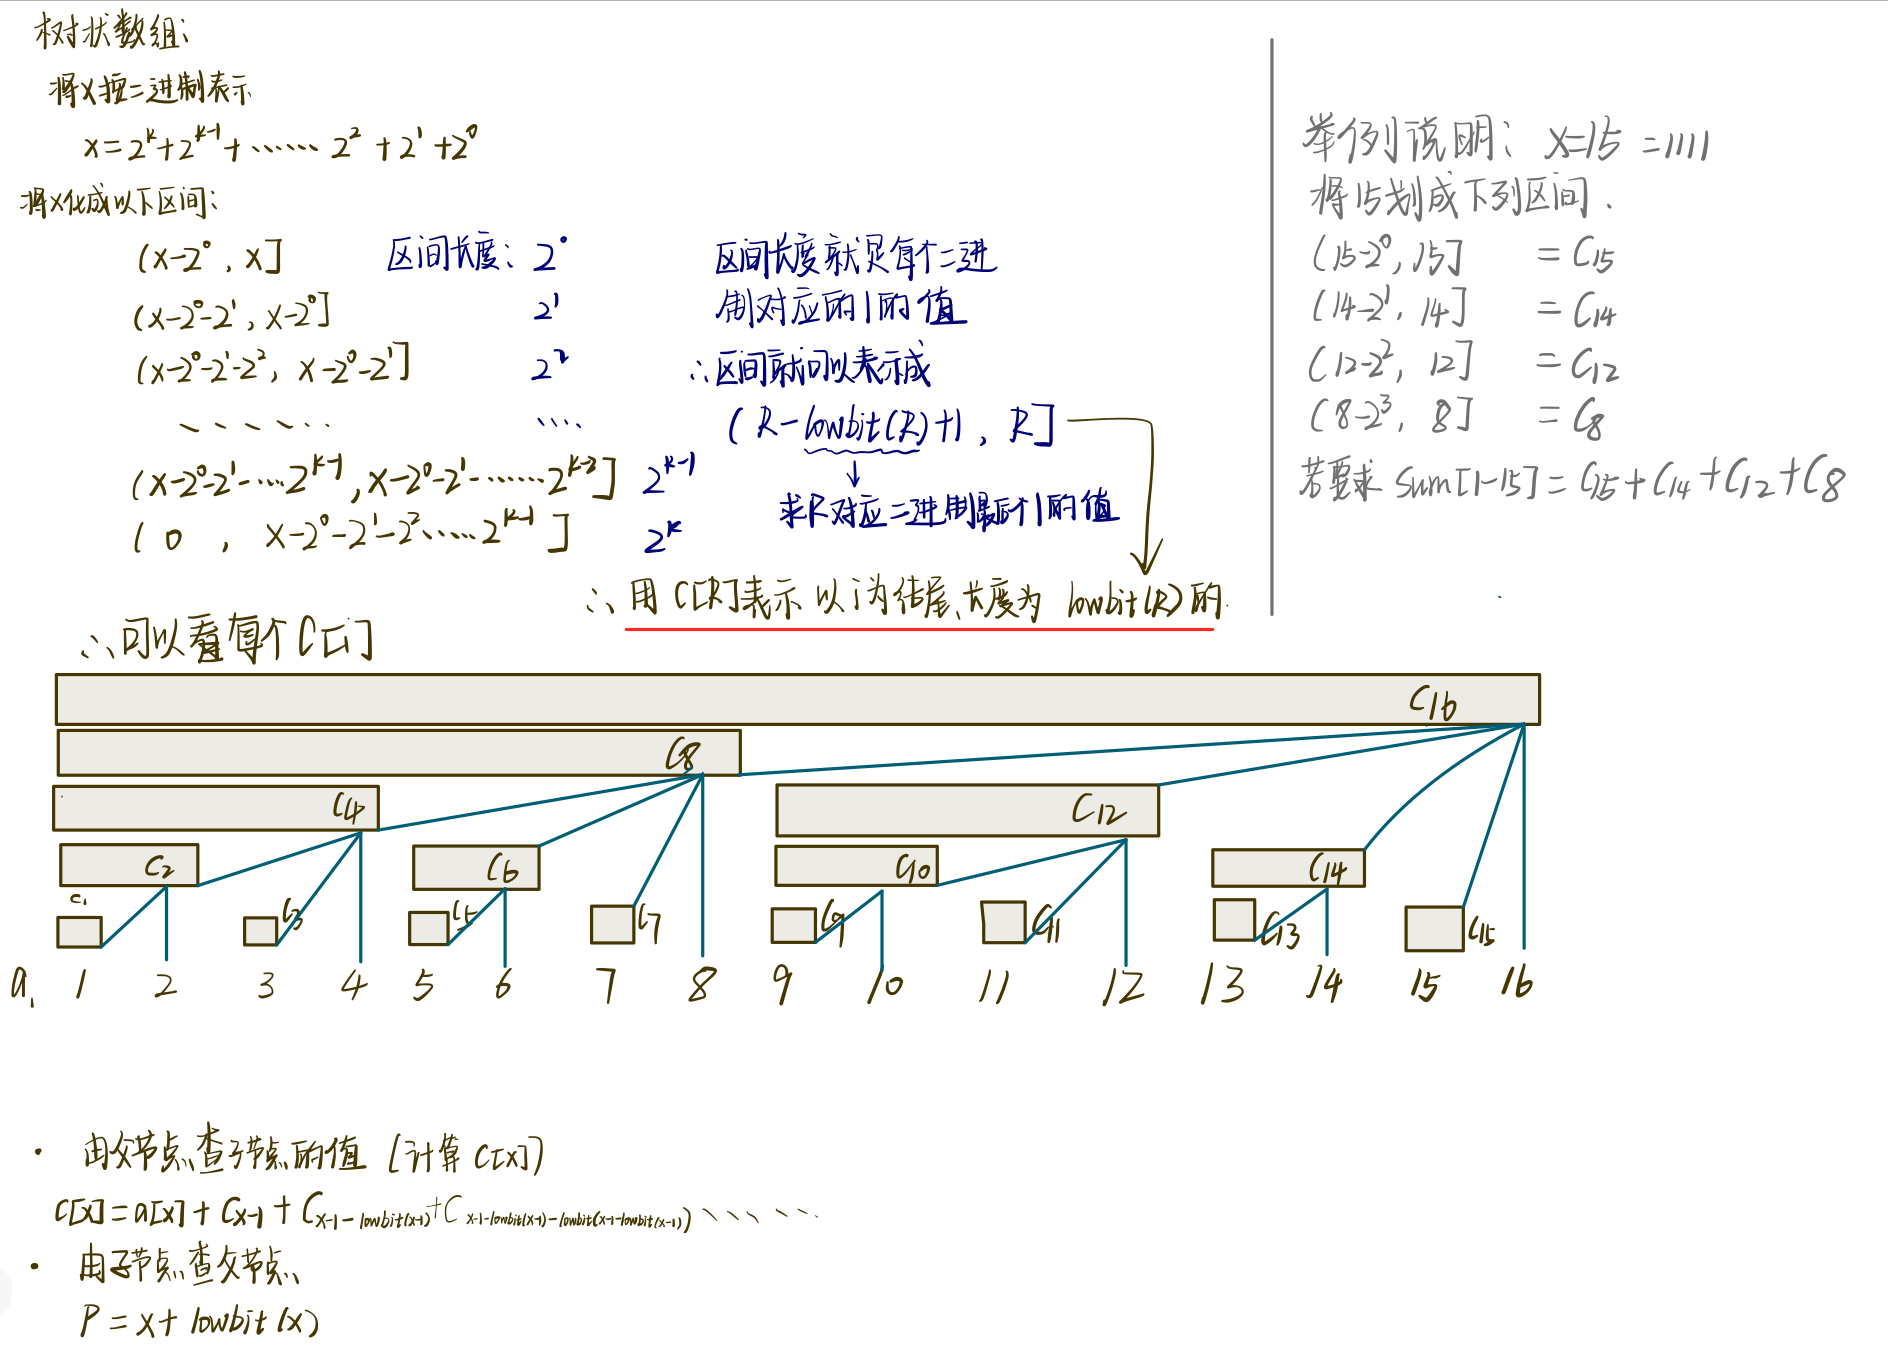 树状数组:
将x按二进制表示
x=2^k+2^{k-1}+…… 2^2+2^1+2^0
将x化成以下区间:
(x-2^0, x] 区间长度: 2^0
(x-2^0-2^1, x-2^0] 2^1
(x-2^0-2^1-2^2, x-2^0-2^1] 2^2
…… ….
(x-2^0-2^1-…2^{k-1}, x-2^0-2^1-……2^{k-2}] 2^{k-1}
(0, x-2^0-2^1-2^2……2^{k-1}] 2^k
区间长度就是每个二进
制对应的1的值
∴区间就可以表示成
(R-lowbit(R)+1, R]
↓
求R对应二进制最后个1的值
∴用C[R]表示以i为结尾、长度为 lowbit(R)的
举例说明: x=15=1111
将15划成下列区间.
(15-2^0, 15] =C15
(14-2^1, 14] =C14
(12-2^2, 12] =C12
(8-2^3, 8] =C8
若要求 Sum[1-15]=C15+C14+C12+C8
∴可以看每个C[i]
C16
C8
C4 C12
C2 C6 C10 C14
C1 C3 C5 C7 C9 C11 C13 C15
a. 1 2 3 4 5 6 7 8 9 10 11 12 13 14 15 16
· 由父节点查子节点的值 (计算C[x])
C[x]=a[x]+C_{x-1}+C_{x-1-lowbit(x-1)}+C_{x-1-lowbit(x-1)-lowbit(x-1-lowbit(x-1))}……
· 由子节点查父节点
P=x+lowbit(x)